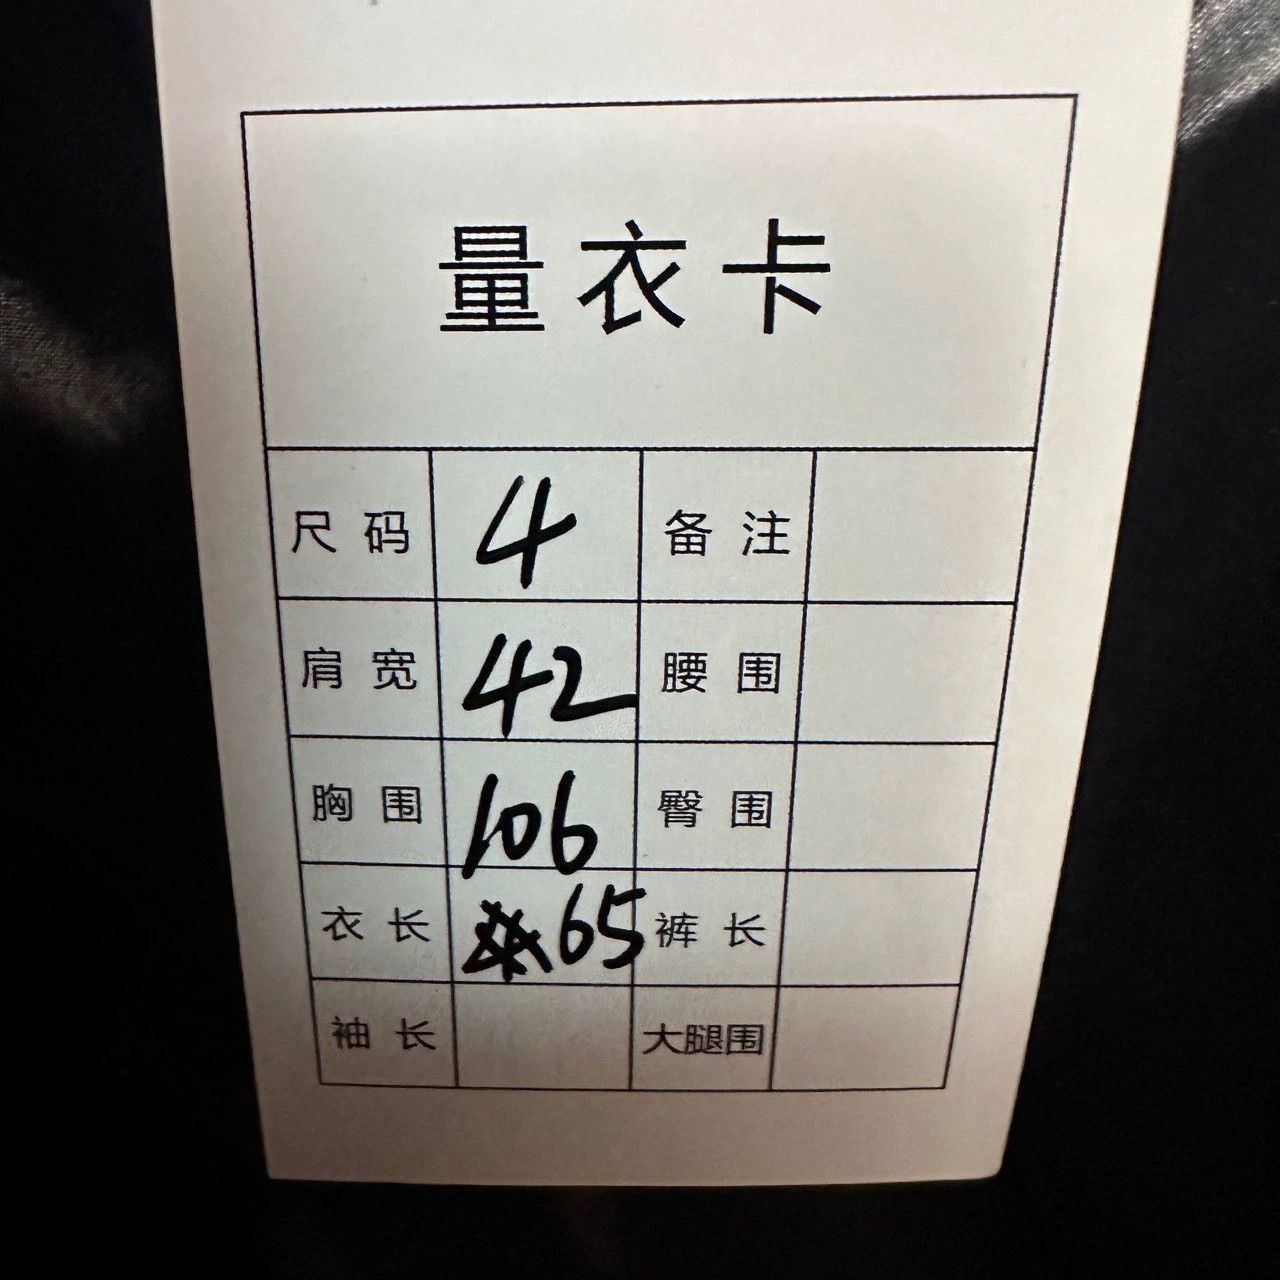 量衣卡
尺码 4 备注
肩宽 42 腰围
胸围 106 臀围
衣长 65 裤长
袖长 大腿围